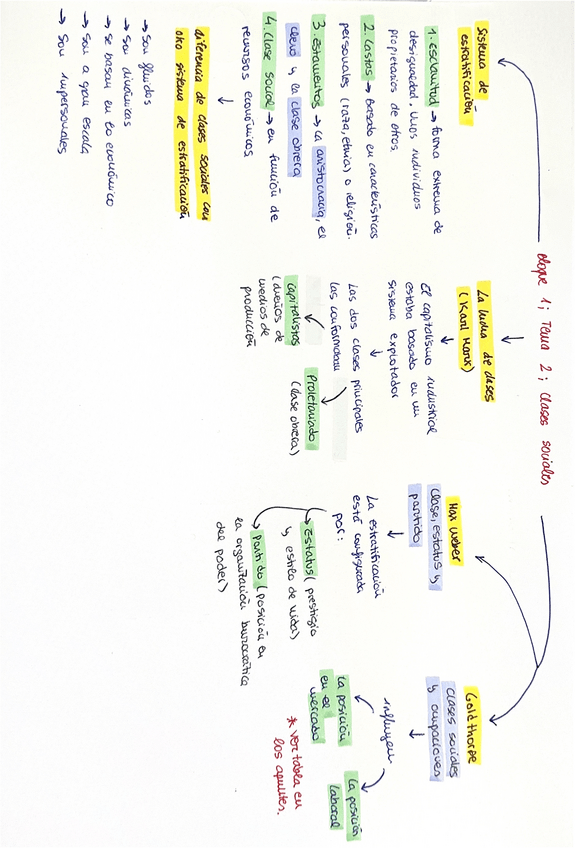 Bloque 1; Tema 2; Clases sociales
Sistema de
estratificación
1. esclavitud → forma extrema de
desigualdad. Unos individuos
propietarios de otros.
2. Castas → Basado en características
personales (raza, etnia) o religión.
3. estamentos → la aristocracia, el
clero y la clase obrera
4. Clase social → en función de
recursos económicos.
diferencia de clases sociales con
otro sistema de estratificación
→ Son fluidos
→ Son dinámicos
→ se basan en lo económico
→ Son a gran escala
→ Son impersonales
La lucha de clases
(Karl Marx)
El capitalismo industrial
estaba basado en un
sistema explotador
Las dos clases principales
las conformaban
Capitalistas
(dueños de
medios de
producción
Proletariado
(clase obrera)
Max Weber
Clase, estatus y
partido
La estratificación
está configurada
por:
Estatus (prestigio
y estilo de vida)
Partido (posición en
la organización burocrática
del poder)
Goldthorpe
clases sociales
y ocupaciones
influyen
la posición
en el
mercado
la posición
laboral
* ver tabla en
los apuntes.